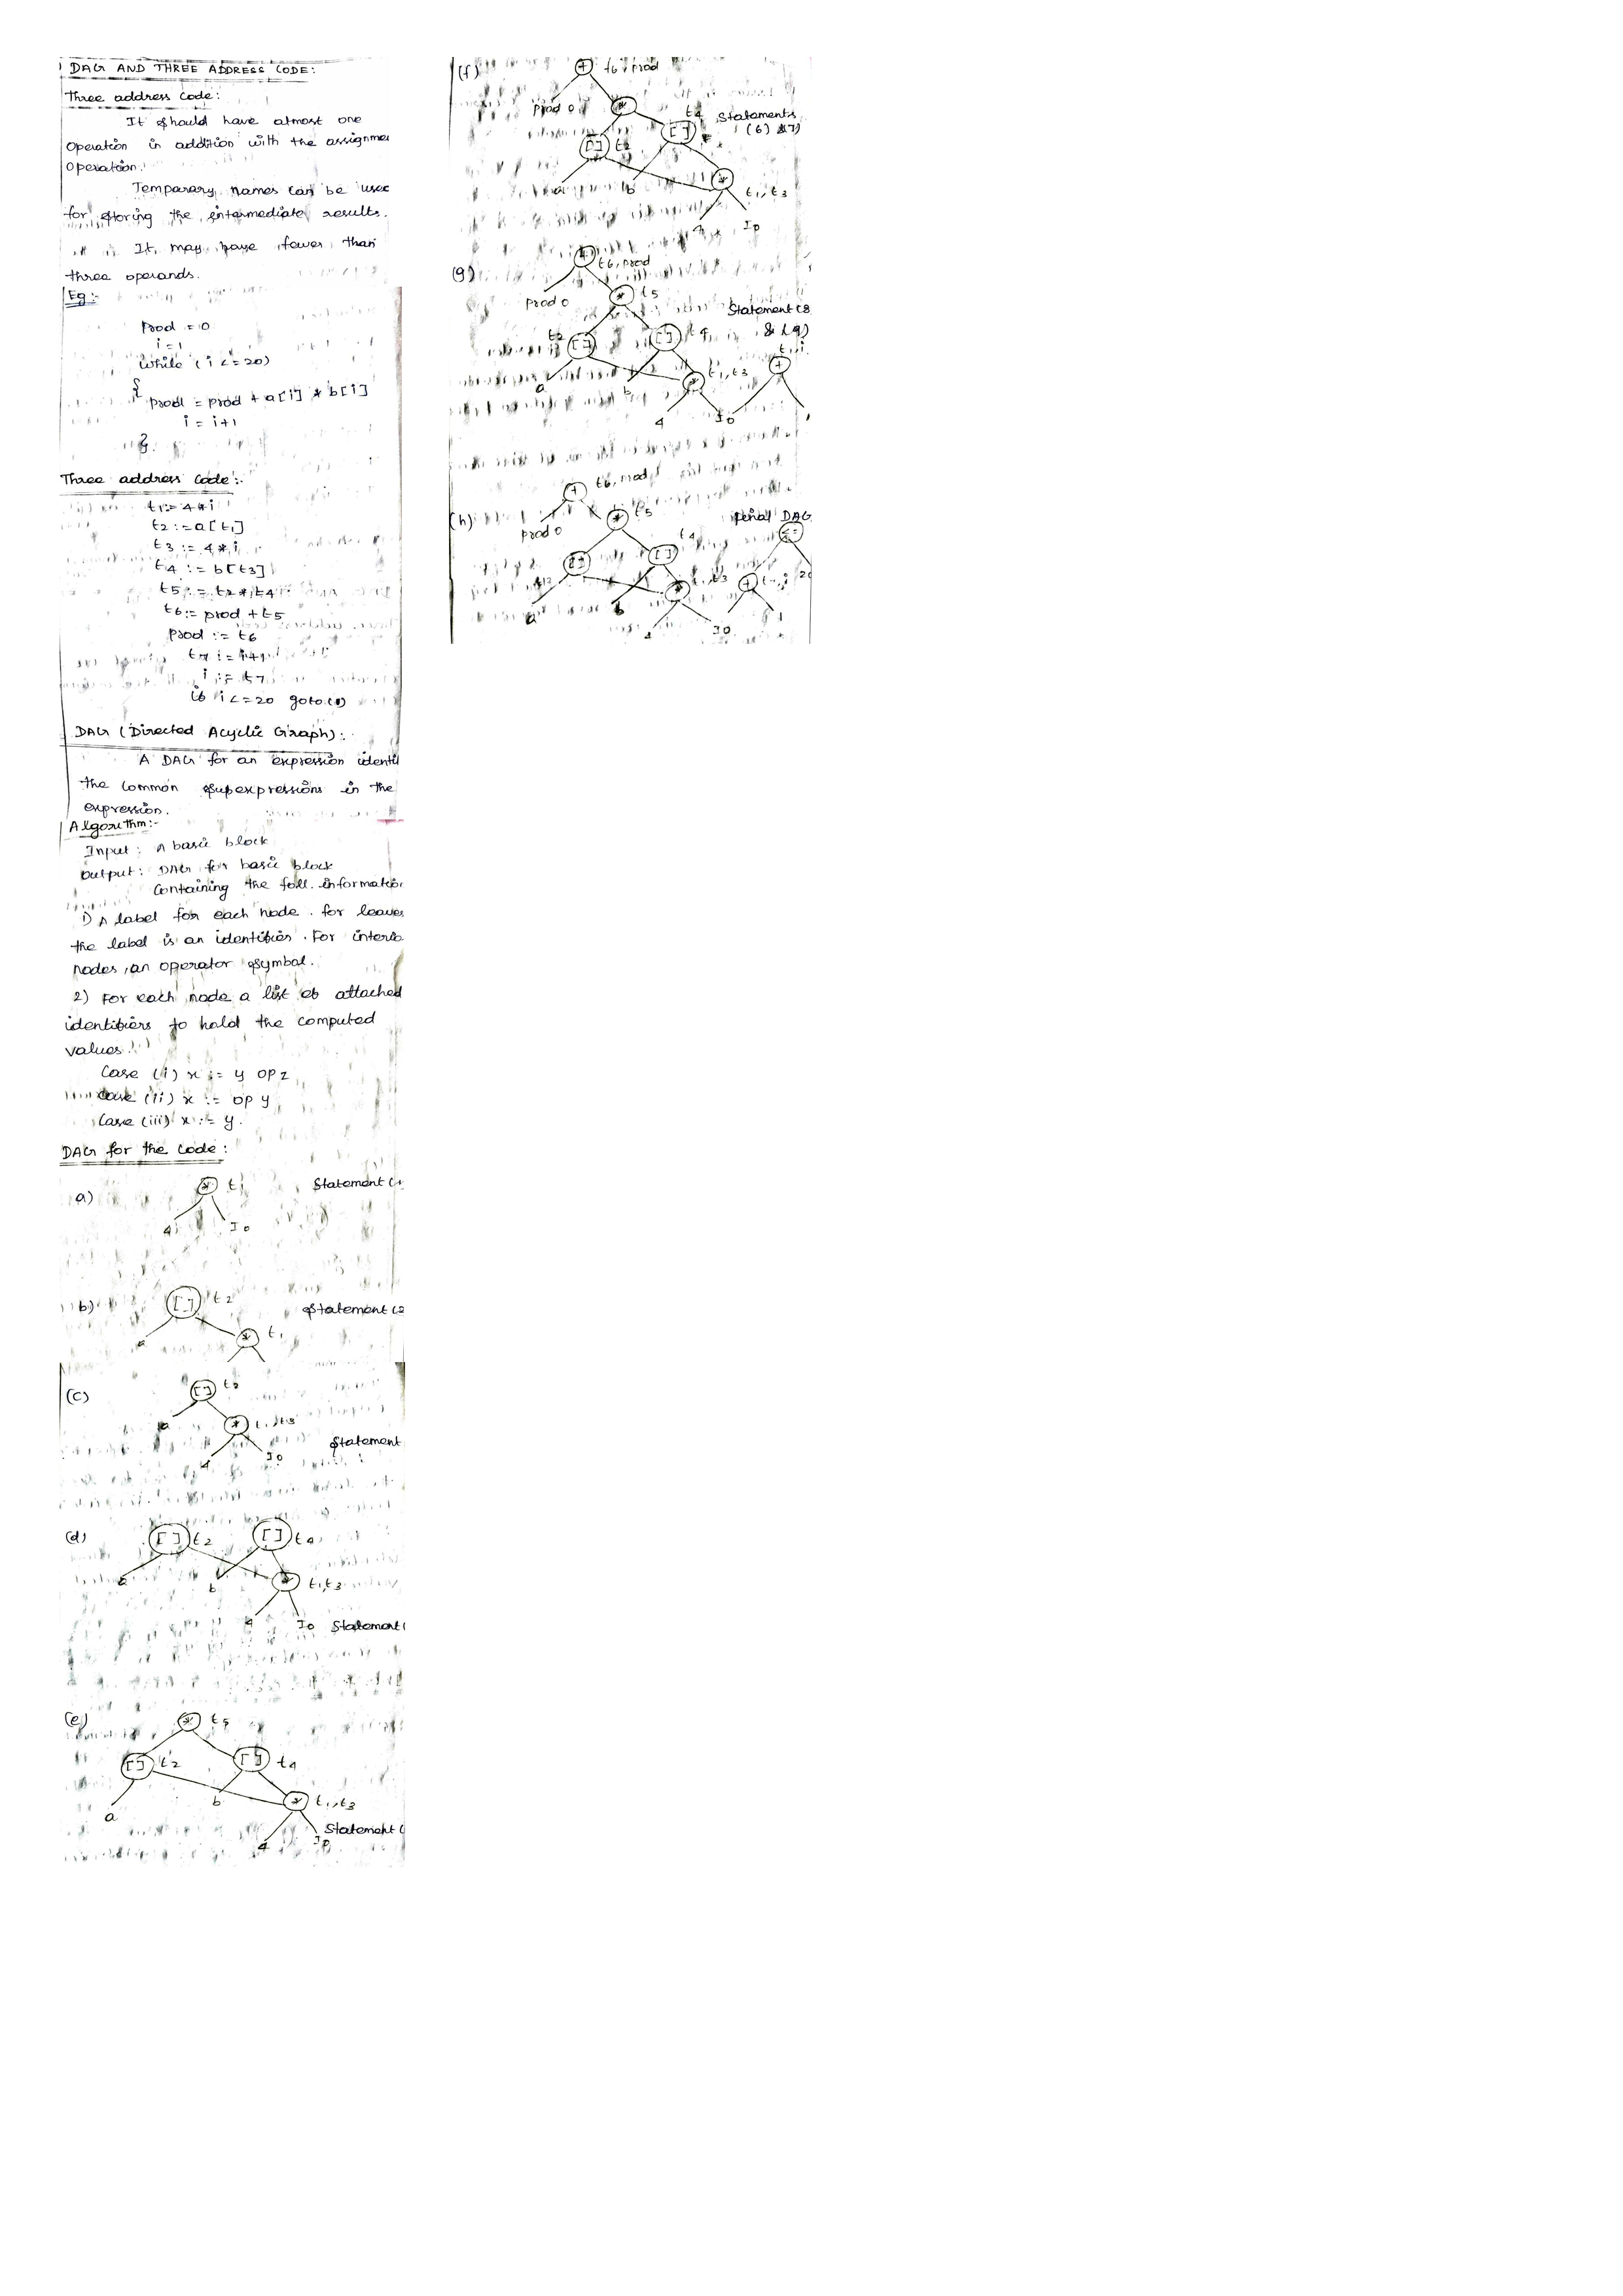 DAG AND THREE ADDRESS CODE:
Three address code:
It should have atmost one
Operation in addition with the assignme
Operation.
Temparary names can be used
for storing the intermediate results.
It may have fewer than
three operands.
Eg:-
Prod = 0
i=1
While (i <=20)
{
prod = prod + a[i] * b[i]
i = i+1
}
Three address code:-
t1:= 4*i
t2:=a[t1]
t3 := 4*i
t4 := b[t3]
t5 := t2*t4
t6:= prod + t5
prod := t6
i := t7
if i <=20 goto (1)
DAG (Directed Acyclic Graph):
A DAG for an expression identi
the common subexpressions in the
expression.
Algorithm:-
Input: A basic block
Output: DAG for basic block
Containing the foll. informatio
1) A label for each node. for leaves
the label is an identifier. For interio
nodes, an operator symbol.
2) For each node a list of attached
identifiers to hold the computed
values.
Case (i) x := y op z
Case (ii) x := op y
Case (iii) x := y.
DAG for the code:
a)
* t1
Statement (1
4 I0
b)
[ ] t2
Statement (2
a * t1
(c)
[ ] t2
a * t1, t3
Statement
4 I0
(d)
[ ] t2 [ ] t4
a b * t1, t3
4 I0 Statement (
(e)
* t5
[ ] t2 [ ] t4
a b * t1, t3
Statement (
4 I0
(f)
+ t6, prod
prod 0 *
t4 Statements
(6) & 7)
[ ] t2 [ ]
a b * t1, t3
4 I0
(g)
+ t6, prod
prod 0 * t5
Statement (8
& (9)
t2 [ ] [ ] t4
a b * t1, t3 +
4 I0
(h)
+ t6, prod
prod 0 * t5
Final DAG
[ ] [ ] t4 <=
a b * t1, t3 +
4 I0 1